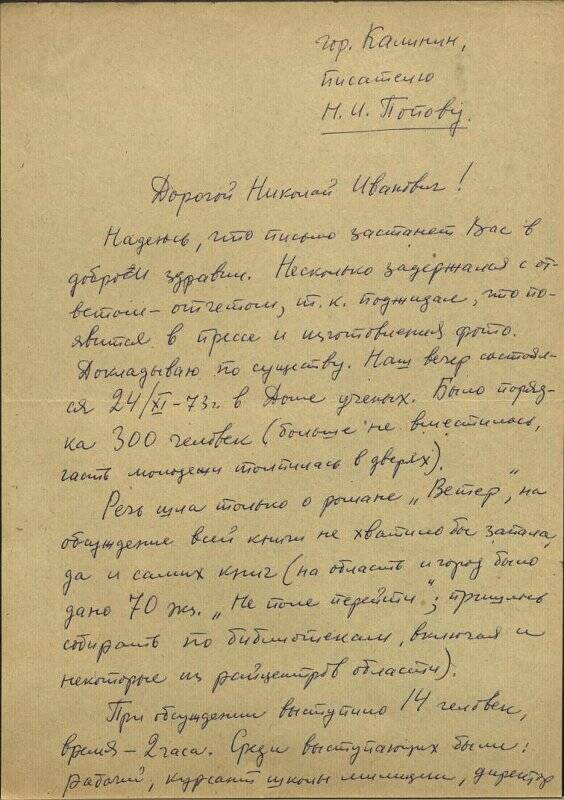 гор. Калинин,
писателю
Н. И. Попову.
Дорогой Николай Иванович!
Надеюсь, что письмо застанет Вас в
добром здравии. Несколько задержался с от-
ветом-отчетом, т. к. поджидал, что по-
явится в прессе и изготовления фото.
Докладываю по существу. Наш вечер состоял-
ся 24/XI-73г. в Доме ученых. Было поряд-
ка 300 человек (больше не вместилось,
часть молодежи толпилась в дверях).
Речь шла только о романе „Ветер“, на
обсуждение всей книги не хватило бы запала,
да и самих книг (на область и город было
дано 70 экз. „Не поле перейти“; пришлось
собирать по библиотекам, включая и
некоторые из райцентров области).
При обсуждении выступило 14 человек,
время – 2 часа. Среди выступающих были:
рабочий, курсант школы милиции, директор